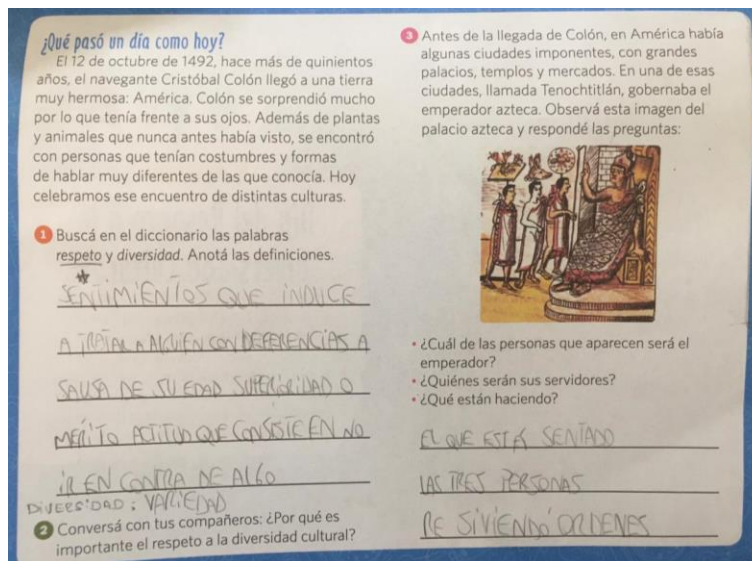 ¿Qué pasó un día como hoy?
El 12 de octubre de 1492, hace más de quinientos
años, el navegante Cristóbal Colón llegó a una tierra
muy hermosa: América. Colón se sorprendió mucho
por lo que tenía frente a sus ojos. Además de plantas
y animales que nunca antes había visto, se encontró
con personas que tenían costumbres y formas
de hablar muy diferentes de las que conocía. Hoy
celebramos ese encuentro de distintas culturas.
1 Buscá en el diccionario las palabras
respeto y diversidad. Anotá las definiciones.
SENTIMIENTOS QUE INDUCE
A TRATAR A ALGUIEN CON DEFERENCIAS A
SAUSA DE SU EDAD SUPERIORIDAD O
MERITO ACTITUD QUE CONSISTE EN NO
IR EN CONTRA DE ALGO
DIVERSIDAD: VARIEDAD
2 Conversá con tus compañeros: ¿Por qué es
importante el respeto a la diversidad cultural?
3 Antes de la llegada de Colón, en América había
algunas ciudades imponentes, con grandes
palacios, templos y mercados. En una de esas
ciudades, llamada Tenochtitlán, gobernaba el
emperador azteca. Observá esta imagen del
palacio azteca y respondé las preguntas:
• ¿Cuál de las personas que aparecen será el
emperador?
• ¿Quiénes serán sus servidores?
• ¿Qué están haciendo?
EL QUE ESTÁ SENTADO
LAS TRES PERSONAS
RE SIVIENDO ORDENES